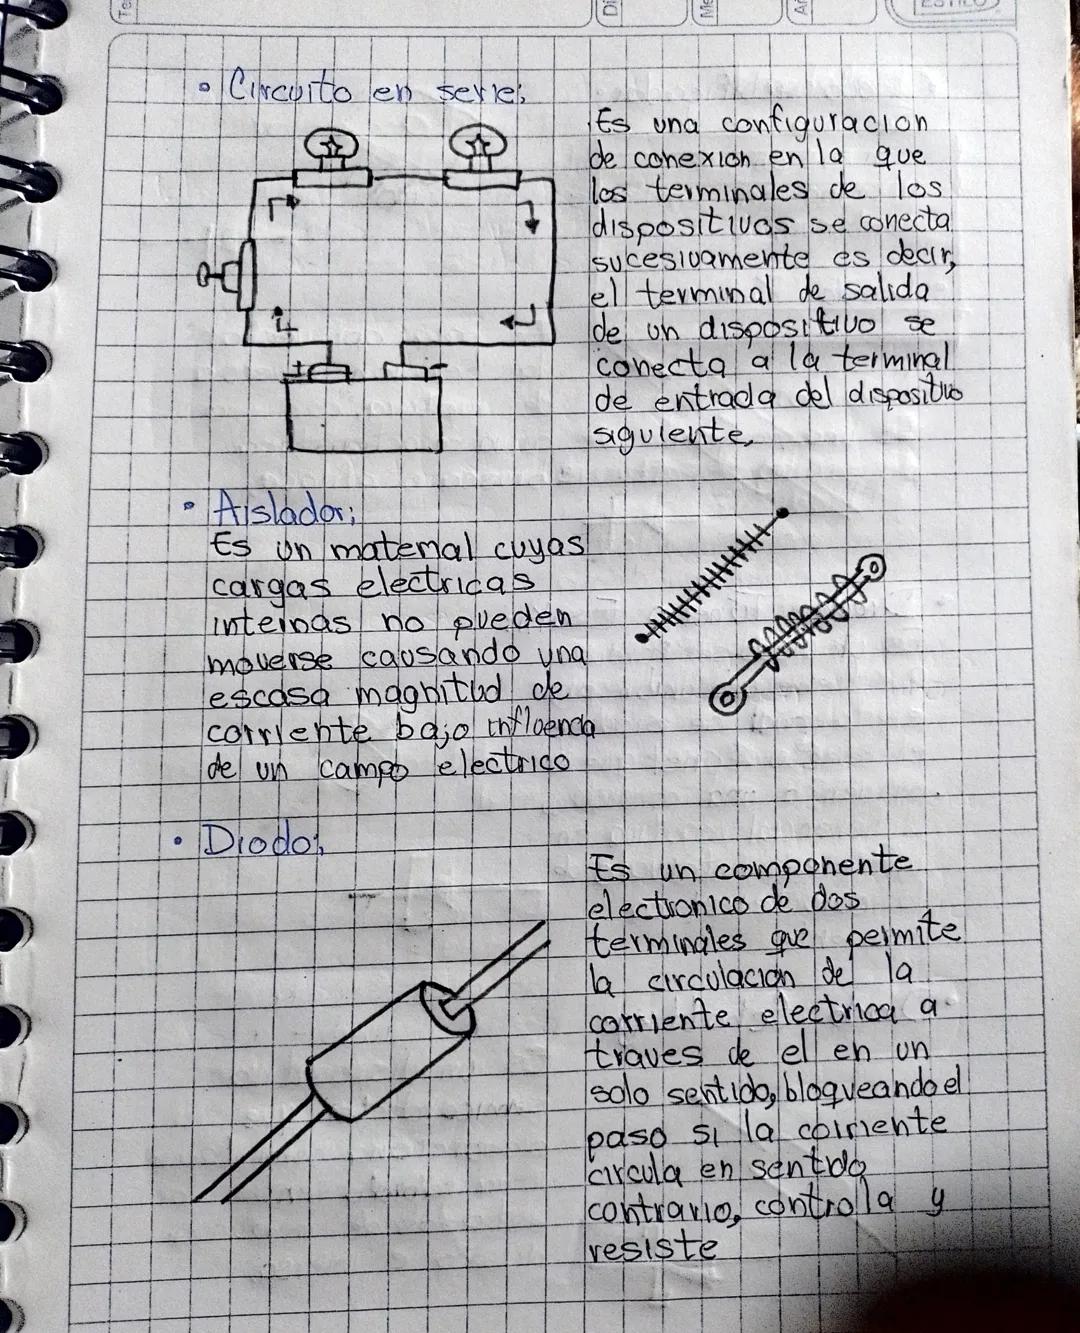 Te
Di
Me
ESTILO
• Circuito en serie:
Es una configuracion
de conexion en la que
los terminales de los
dispositivos se conecta
sucesivamente es decir,
el terminal de salida
de un dispositivo se
conecta a la terminal
de entrada del dispositivo
siguiente,
i
+ -
• Aislador:
Es un material cuyas
cargas electricas
internas no pueden
moverse causando una
escasa magnitud de
corriente bajo influencia
de un campo electrico
• Diodo:
Es un componente
electronico de dos
terminales que permite
la circulacion de la
corriente electrica a
traves de el en un
solo sentido, bloqueando el
paso si la corriente
circula en sentido
contrario, controla y
resiste